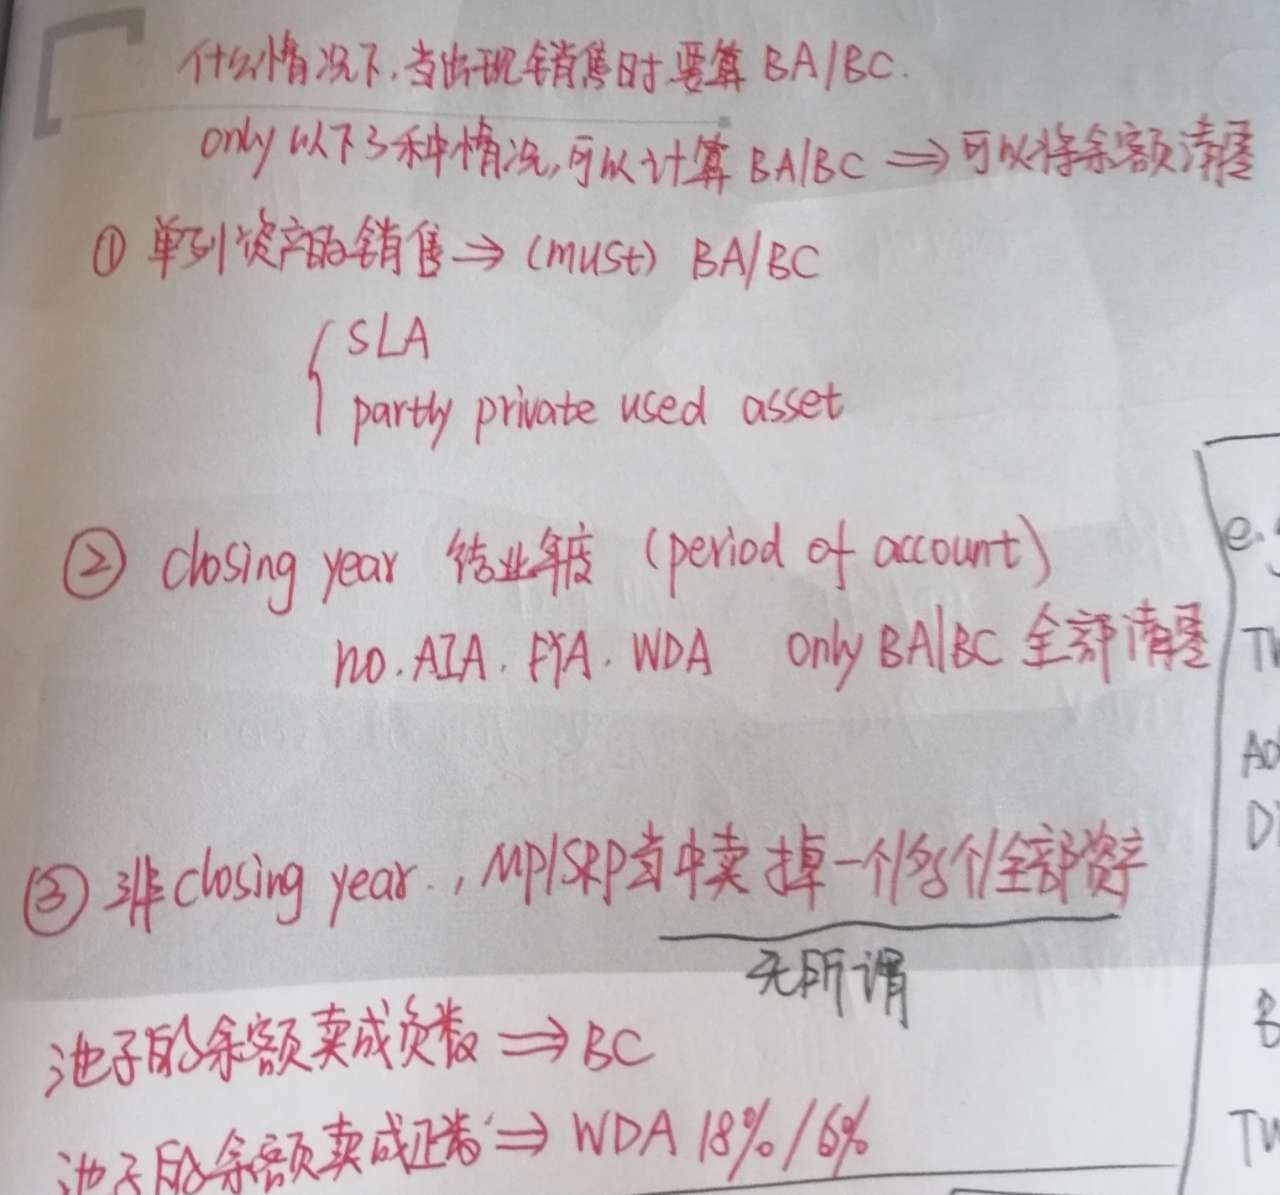 什么情况下,当出现销售时要算 BA/BC.
only 以下3种情况,可以计算 BA/BC ⇒ 可以将余额清零
① 单列资产的销售 ⇒ (must) BA/BC
SLA
partly private used asset
② closing year 结业年度 (period of account)
no. AIA. FYA. WDA only BA/BC 全部清零
③ 非 closing year., MP/SRP当中卖掉一个/多个/全部资产
无所谓
池子的余额卖成负数 ⇒ BC
池子的余额卖成正数 ⇒ WDA 18%/6%
e.
Th
Ad
Di
B
Tw